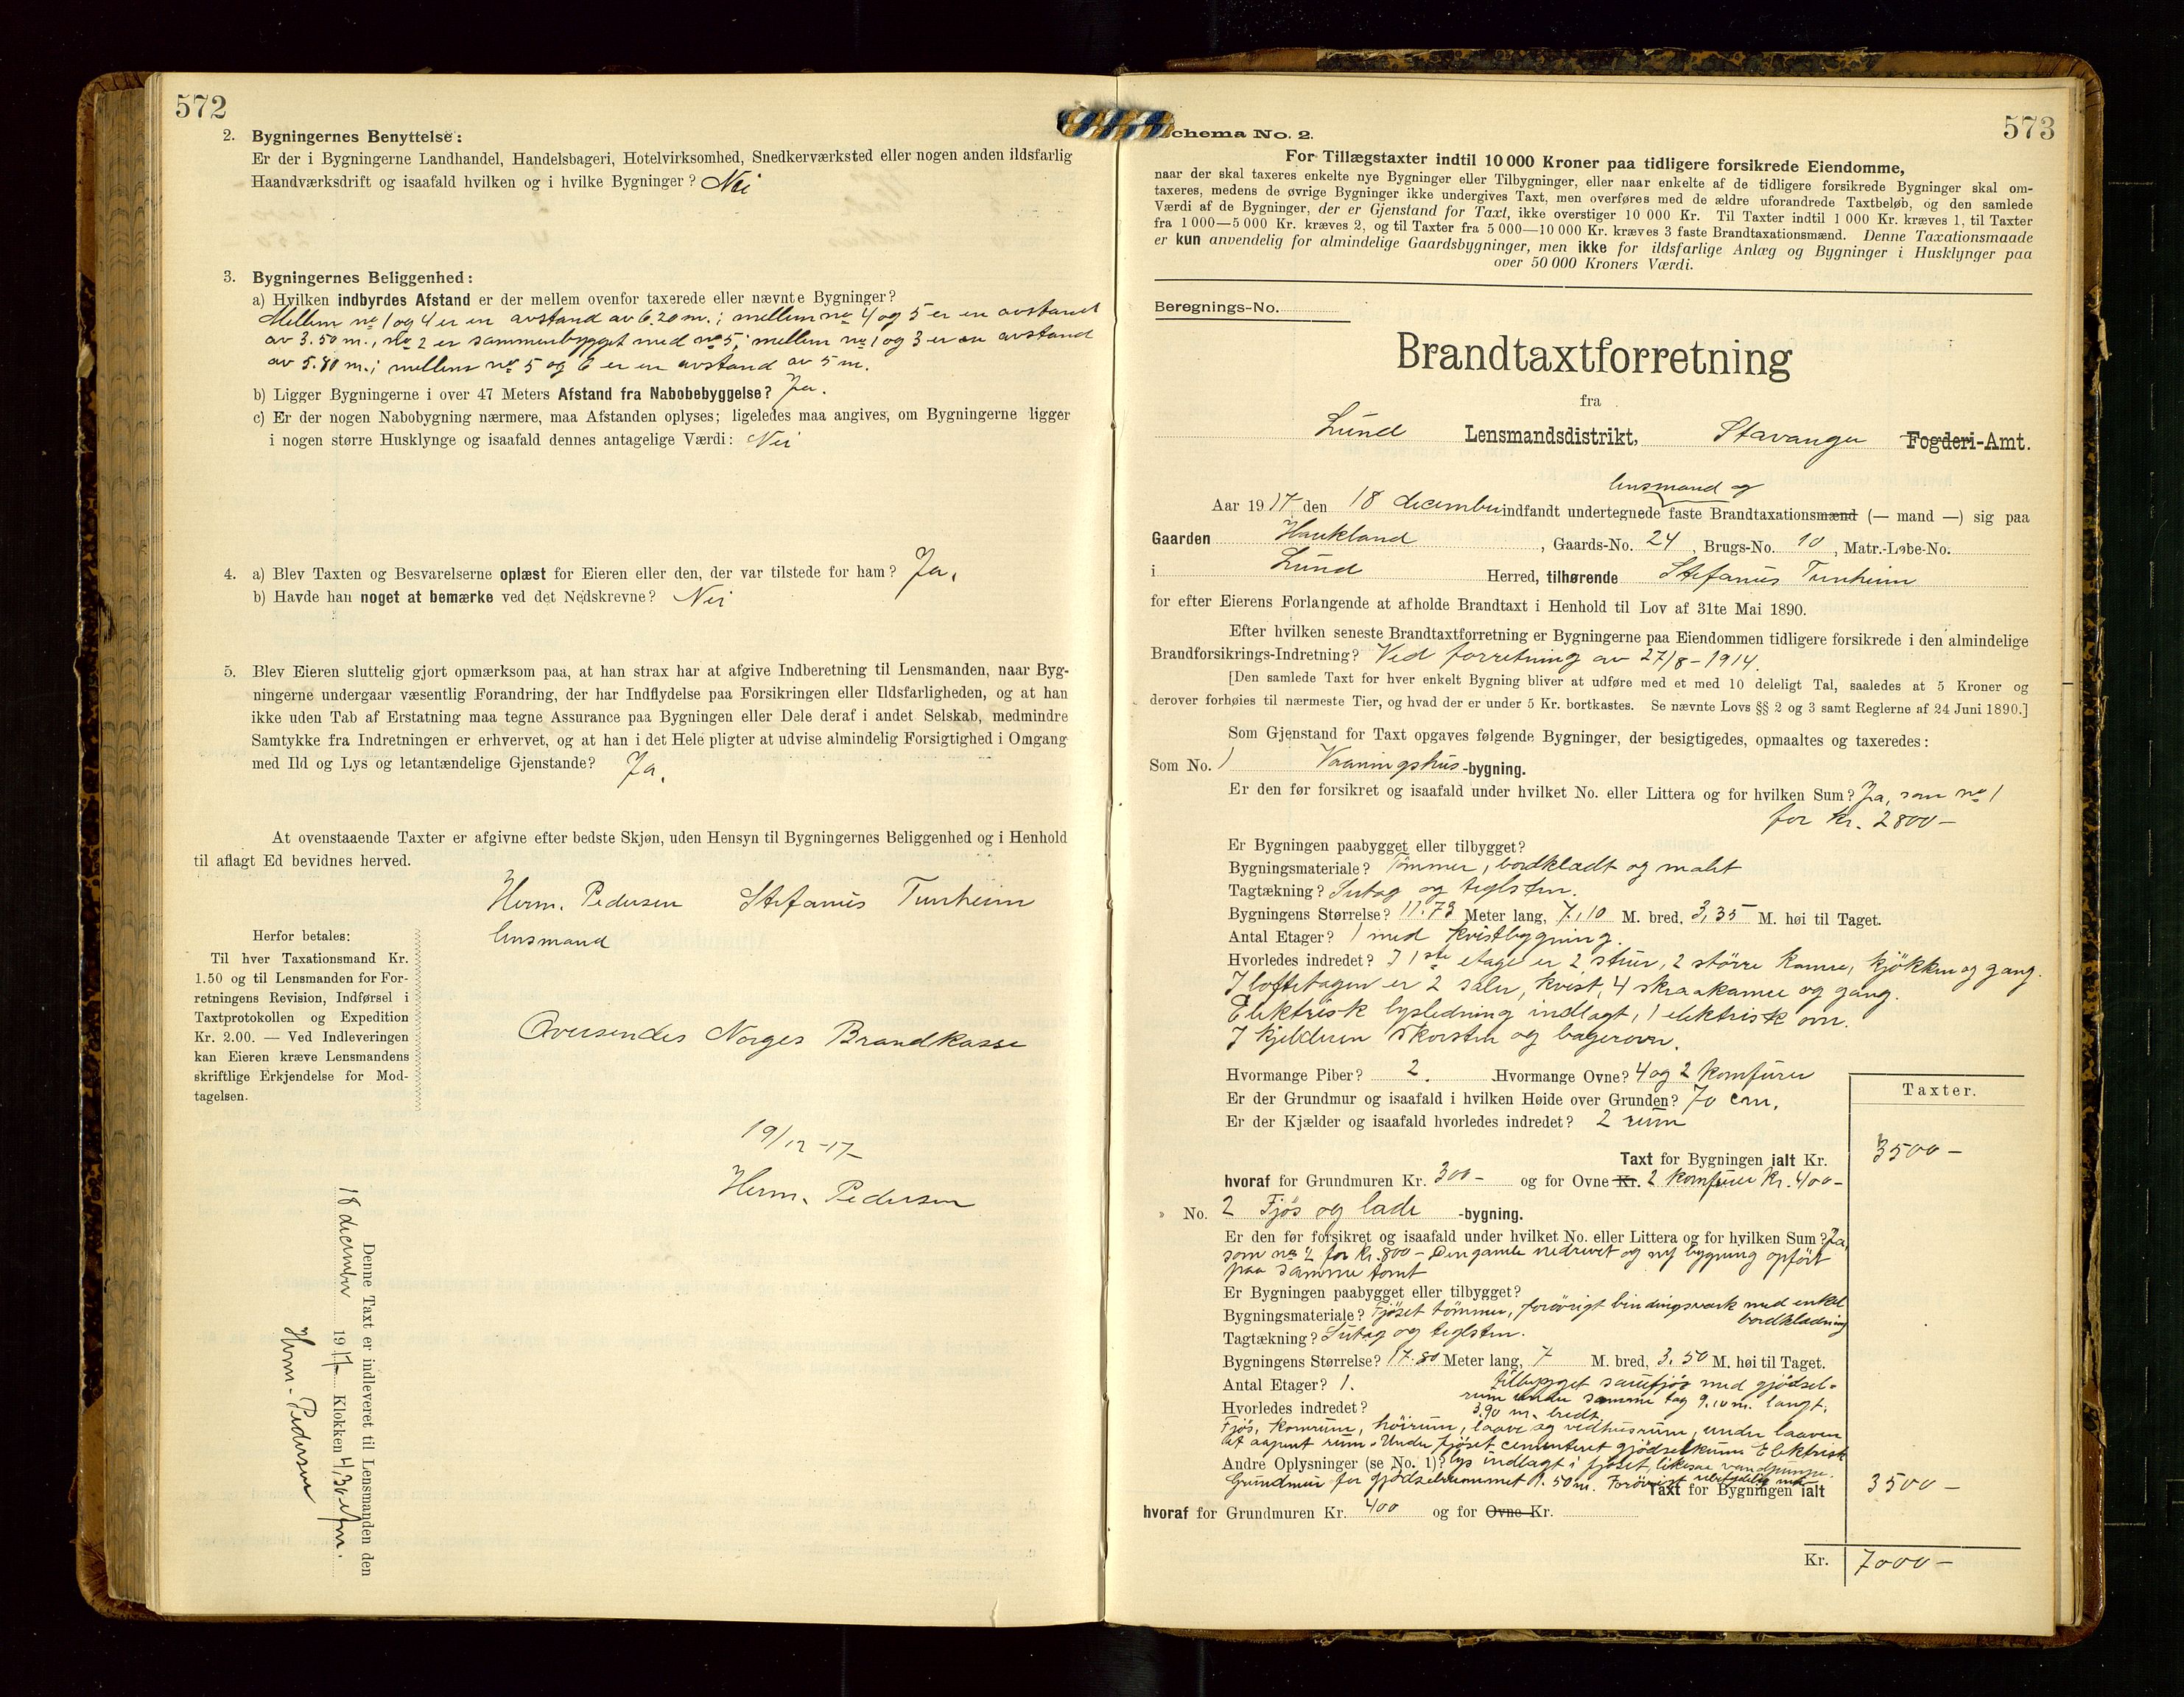 572
2. Bygningernes Benyttelse:
Er der i Bygningerne Landhandel, Handelsbageri, Hotelvirksomhed, Snedkerværksted eller nogen anden ildsfarlig
Haandværksdrift og isaafald hvilken og i hvilke Bygninger? Nei
3. Bygningernes Beliggenhed:
a) Hvilken indbyrdes Afstand er der mellem ovenfor taxerede eller nævnte Bygninger?
Mellem no 1 og 4 er en avstand av 6.20 m.; mellem no 4 og 5 er en avstand
av 3.50 m., no 2 er sammenbygget med no 5; mellem no 1 og 3 er en avstand
av 5.80 m.; mellem no 5 og 6 er en avstand av 5 m.
b) Ligger Bygningerne i over 47 Meters Afstand fra Nabobebyggelse? Ja.
c) Er der nogen Nabobygning nærmere, maa Afstanden oplyses; ligeledes maa angives, om Bygningerne ligger
i nogen større Husklynge og isaafald dennes antagelige Værdi: Nei
4. a) Blev Taxten og Besvarelserne oplæst for Eieren eller den, der var tilstede for ham? Ja.
b) Havde han noget at bemærke ved det Nedskrevne? Nei
5. Blev Eieren sluttelig gjort opmærksom paa, at han strax har at afgive Indberetning til Lensmanden, naar Byg-
ningerne undergaar væsentlig Forandring, der har Indflydelse paa Forsikringen eller Ildsfarligheden, og at han
ikke uden Tab af Erstatning maa tegne Assurance paa Bygningen eller Dele deraf i andet Selskab, medmindre
Samtykke fra Indretningen er erhvervet, og at han i det Hele pligter at udvise almindelig Forsigtighed i Omgang
med Ild og Lys og letantændelige Gjenstande? Ja.
At ovenstaaende Taxter er afgivne efter bedste Skjøn, uden Hensyn til Bygningernes Beliggenhed og i Henhold
til aflagt Ed bevidnes herved.
Herm. Pedersen Stefanus Tunheim
lensmand
Herfor betales:
Til hver Taxationsmand Kr.
1.50 og til Lensmanden for For-
retningens Revision, Indførsel i
Taxtprotokollen og Expedition
Kr. 2.00. — Ved Indleveringen
kan Eieren kræve Lensmandens
skriftlige Erkjendelse for Mod-
tagelsen.
Oversendes Norges Brandkasse
19/12-17
Herm. Pedersen
Denne Taxt er indleveret til Lensmanden den
18 december 1917 Klokken 4,30 efm.
Herm. Pedersen
573
Schema No. 2.
For Tillægstaxter indtil 10 000 Kroner paa tidligere forsikrede Eiendomme,
naar der skal taxeres enkelte nye Bygninger eller Tilbygninger, eller naar enkelte af de tidligere forsikrede Bygninger skal om-
taxeres, medens de øvrige Bygninger ikke undergives Taxt, men overføres med de ældre uforandrede Taxtbeløb, og den samlede
Værdi af de Bygninger, der er Gjenstand for Taxt, ikke overstiger 10 000 Kr. Til Taxter indtil 1 000 Kr. kræves 1, til Taxter
fra 1 000—5 000 Kr. kræves 2, og til Taxter fra 5 000—10 000 Kr. kræves 3 faste Brandtaxationsmænd. Denne Taxationsmaade
er kun anvendelig for almindelige Gaardsbygninger, men ikke for ildsfarlige Anlæg og Bygninger i Husklynger paa
over 50 000 Kroners Værdi.
Beregnings-No.
Brandtaxtforretning
fra
Lund Lensmandsdistrikt, Stavanger Fogderi-Amt.
lensmand og
Aar 1917 den 18 december indfandt undertegnede faste Brandtaxationsmænd (— mand —) sig paa
Gaarden Haukland, Gaards-No. 24, Brugs-No. 10, Matr.-Løbe-No.
i Lund Herred, tilhørende Stefanus Tunheim
for efter Eierens Forlangende at afholde Brandtaxt i Henhold til Lov af 31te Mai 1890.
Efter hvilken seneste Brandtaxtforretning er Bygningerne paa Eiendommen tidligere forsikrede i den almindelige
Brandforsikrings-Indretning? Ved forretning av 27/8-1914.
[Den samlede Taxt for hver enkelt Bygning bliver at udføre med et med 10 deleligt Tal, saaledes at 5 Kroner og
derover forhøies til nærmeste Tier, og hvad der er under 5 Kr. bortkastes. Se nævnte Lovs §§ 2 og 3 samt Reglerne af 24 Juni 1890.]
Som Gjenstand for Taxt opgaves følgende Bygninger, der besigtigedes, opmaaltes og taxeredes:
Som No. 1 Vaaningshus-bygning.
Er den før forsikret og isaafald under hvilket No. eller Littera og for hvilken Sum? Ja, som no 1
for kr. 2800-
Er Bygningen paabygget eller tilbygget?
Bygningsmateriale? Tømmer, bordklædt og malt
Tagtækning? Sutag og teglsten.
Bygningens Størrelse? 11.73 Meter lang, 7,10 M. bred, 3,35 M. høi til Taget.
Antal Etager? 1 med kvistbygning.
Hvorledes indredet? I 1ste etage er 2 stuer, 2 större kamre, kjökken og gang.
I loftetagen er 2 saler, kvist, 4 skraakamre og gang.
Elektrisk lysledning indlagt, 1 elektrisk ovn.
I kjelderen skorsten og bagerovn.
Hvormange Piber? 2. Hvormange Ovne? 4 og 2 komfurer
Er der Grundmur og isaafald i hvilken Høide over Grunden? 70 cm.
Er der Kjælder og isaafald hvorledes indredet? 2 rum
Taxter.
Taxt for Bygningen ialt Kr. 3500-
hvoraf for Grundmuren Kr. 300- og for Ovne Kr. 2 komfurer Kr. 400-
» No. 2 Fjös og lade -bygning.
Er den før forsikret og isaafald under hvilket No. eller Littera og for hvilken Sum? Ja,
som no 2 for Kr. 800- Den gamle nedrevet og ny bygning opfört
paa samme tomt
Er Bygningen paabygget eller tilbygget?
Bygningsmateriale? Fjöset tömmer, forövrigt bindingsverk med enkel
bordklædning
Tagtækning? Sutag og teglsten.
Bygningens Størrelse? 17.80 Meter lang, 7 M. bred, 3.50 M. høi til Taget.
Antal Etager? 1. tilbygget sauefjös med gjödsel-
rum under samme tag 9.10 m. langt.
Hvorledes indredet? 3.90 m. bredt.
Fjös, kornrum, höirum, laave og vedhusrum, under laaven
et aapent rum. Under fjöset cementeret gjödselkum. Elektrisk
Andre Oplysninger (se No. 1)? lys indlagt i fjöset, likesaa vandpumpe.
Grundmur for gjödselrummet 1.50 m. Forövrigt ubetydelig mur
Taxt for Bygningen ialt 3500-
hvoraf for Grundmuren Kr. 400 og for Ovne Kr.
Kr. 7000-